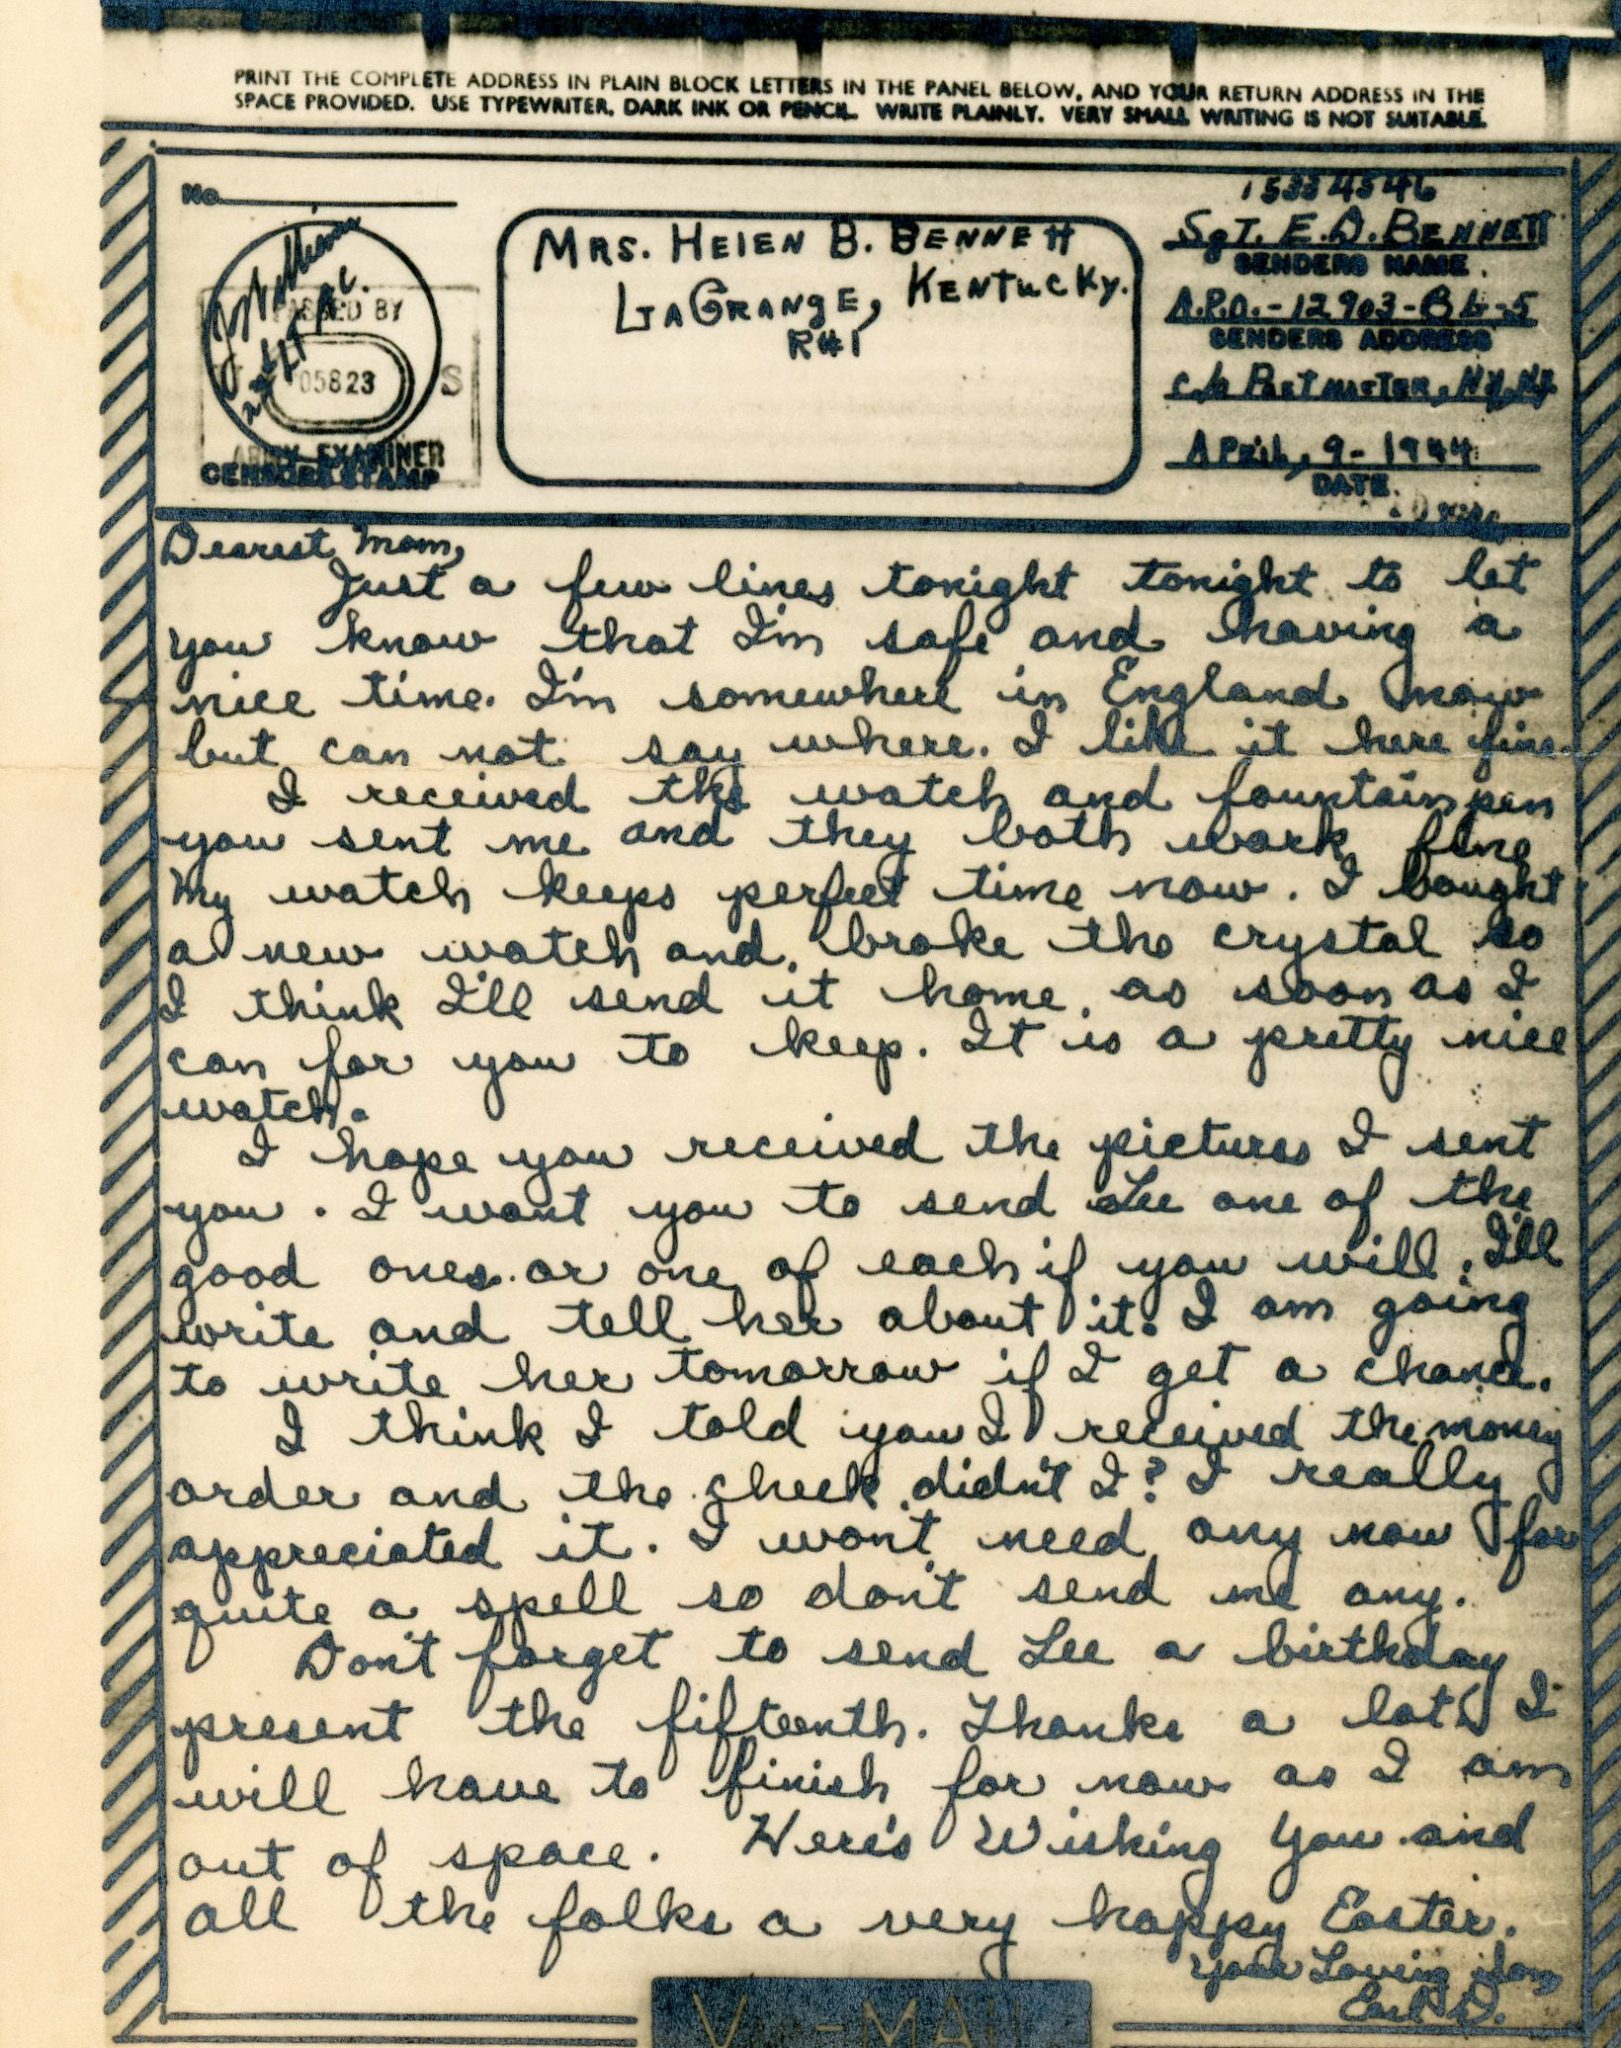 PRINT THE COMPLETE ADDRESS IN PLAIN BLOCK LETTERS IN THE PANEL BELOW, AND YOUR RETURN ADDRESS IN THE
SPACE PROVIDED. USE TYPEWRITER, DARK INK OR PENCIL. WRITE PLAINLY. VERY SMALL WRITING IS NOT SUITABLE.
No.
PASSED BY
U S
05823
ARMY EXAMINER
CENSORS STAMP
MRS. HELEN B. BENNETT
LAGRANGE, KENTUCKY.
R#1
15334546
SGT. E.D. BENNETT
SENDERS NAME
A.P.O. - 12903-B
SENDERS ADDRESS
c/o POSTMASTER, N.Y., N.Y.
APRIL, 9 - 1944
DATE
Dearest Mom,
Just a few lines tonight tonight to let
you know that I'm safe and having a
nice time. I'm somewhere in England now
but can not say where. I like it here fine.
I received the watch and fountain pen
you sent me and they both work fine
My watch keeps perfect time now. I bought
a new watch and broke the crystal so
I think I'll send it home as soon as I
can for you to keep. It is a pretty nice
watch.
I hope you received the pictures I sent
you. I want you to send Lee one of the
good ones or one of each if you will. I'll
write and tell her about it. I am going
to write her tomorrow if I get a chance.
I think I told you I received the money
order and the check, didn't I? I really
appreciated it. I wont need any now for
quite a spell so don't send me any.
Don't forget to send Lee a birthday
present the fifteenth. Thanks a lot. I
will have to finish for now as I am
out of space. Here's Wishing You and
all the folks a very happy Easter.
Your Loving Son
Earl D.
V-MAIL